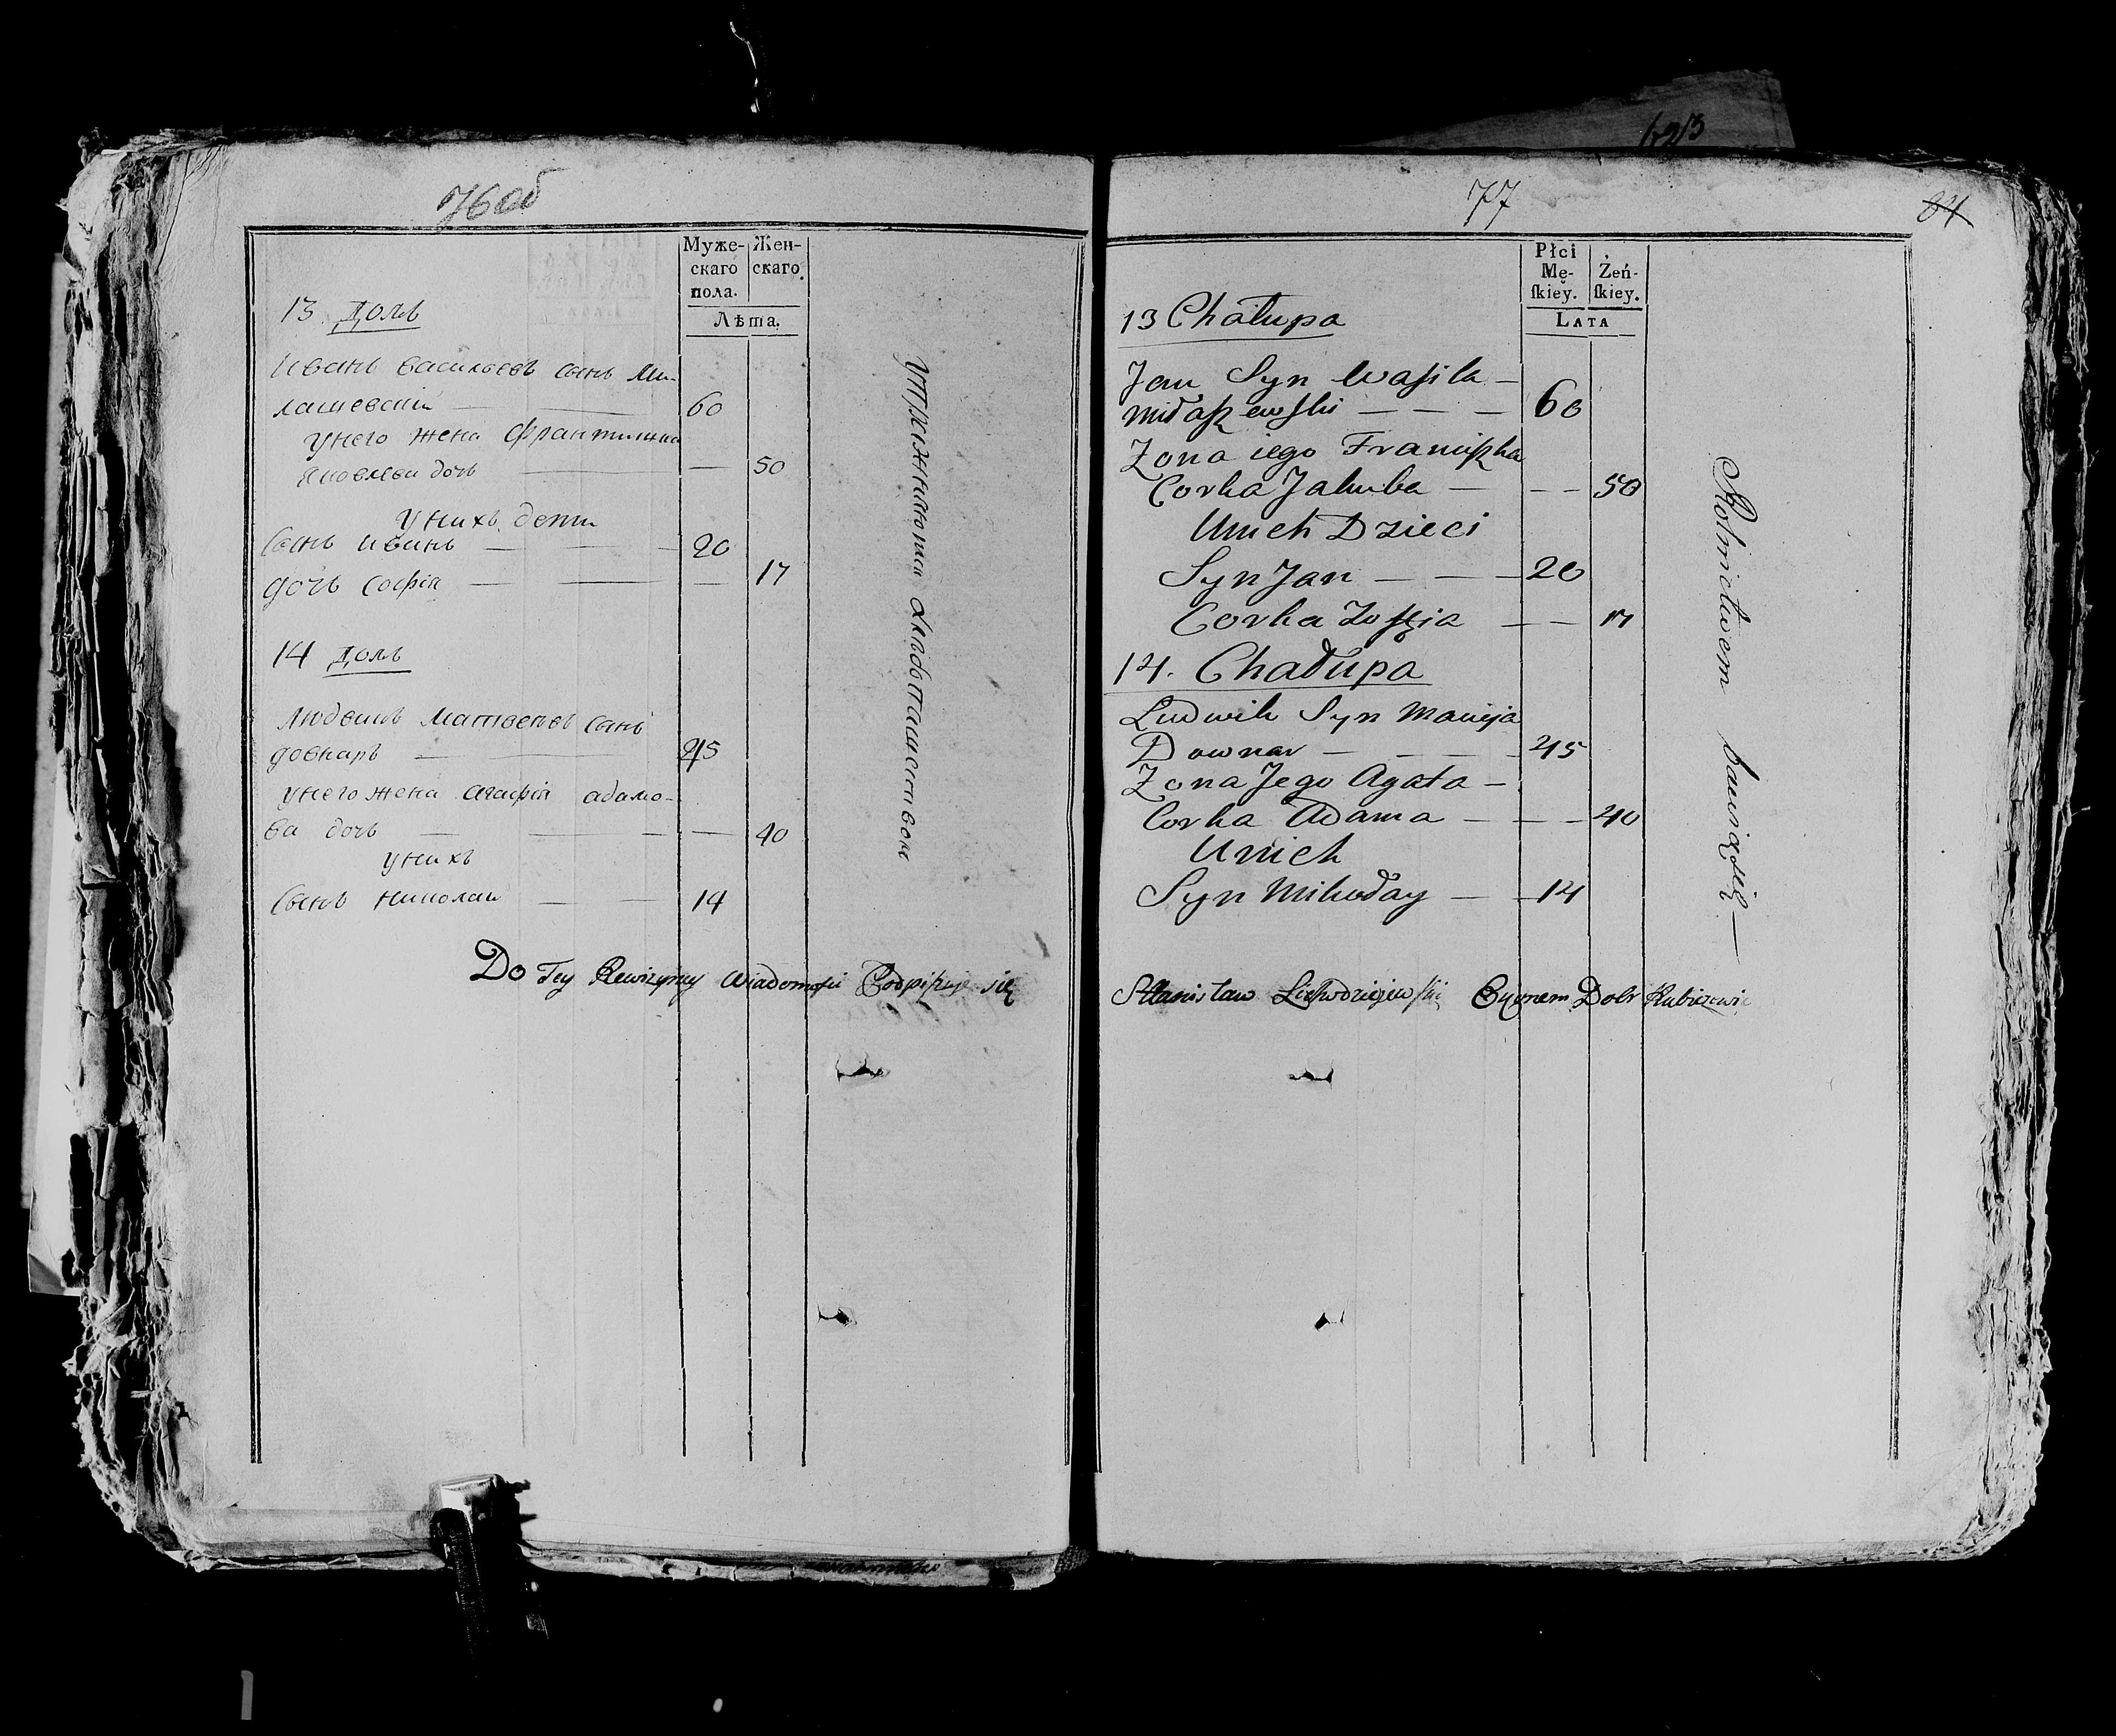 76 об
Муже-
скаго
пола.
Жен-
скаго.
Лѣта.
13 домъ
Иванъ васильевъ сынъ Ми-
лашевскій — — 60
унего жена Франтишка
Яковлева дочь — — 50
унихъ дети
Сынъ иванъ — — 20
дочь Софія — — — 17
14 домъ
людвикъ матвеевъ сынъ
довнаръ — — 45
унего жена агафія адамо-
ва дочь — — — — 40
унихъ
Сынъ николаи — — 14
Do Tey Rewizyiney Wiadomości Podpisuje się
77
84
Płci
Mę-
ſkiey.
Żeń-
ſkiey.
LATA
13 Chałupa
Jan Syn Waſila —
Miłaszewſki — — — 60
Zona iego Franciſzka
Corka Jakuba — — — 50
Unich Dzieci
Syn Jan — — — 20
Corka Zoffia — — 17
14. Chałupa
Ludwik Syn Macieja
Downar — — — 45
Zona Jego Agata —
Corka Adama — — — 40
Unich
Syn Mikołay — — 14
Rolnictwem bawią się —
Stanisław